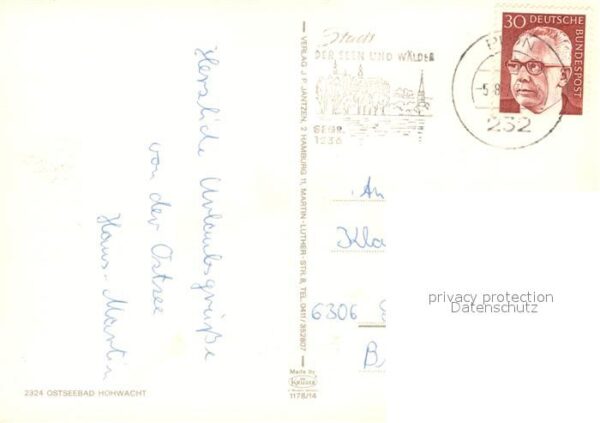 Herzliche Urlaubsgrüße
von der Ostsee
Hans-Martin
2324 OSTSEEBAD HOHWACHT
VERLAG J. P. JANTZEN, 2 HAMBURG 11, MARTIN-LUTHER-STR. 8, TEL. 0411/352807
Made by
Krüger
1178/14
Stadt
DER SEEN UND WÄLDER
GEGR.
1236
PLÖN
-5.8.
232
30 DEUTSCHE
BUNDESPOST
An
Kla
6306
B
privacy protection
Datenschutz